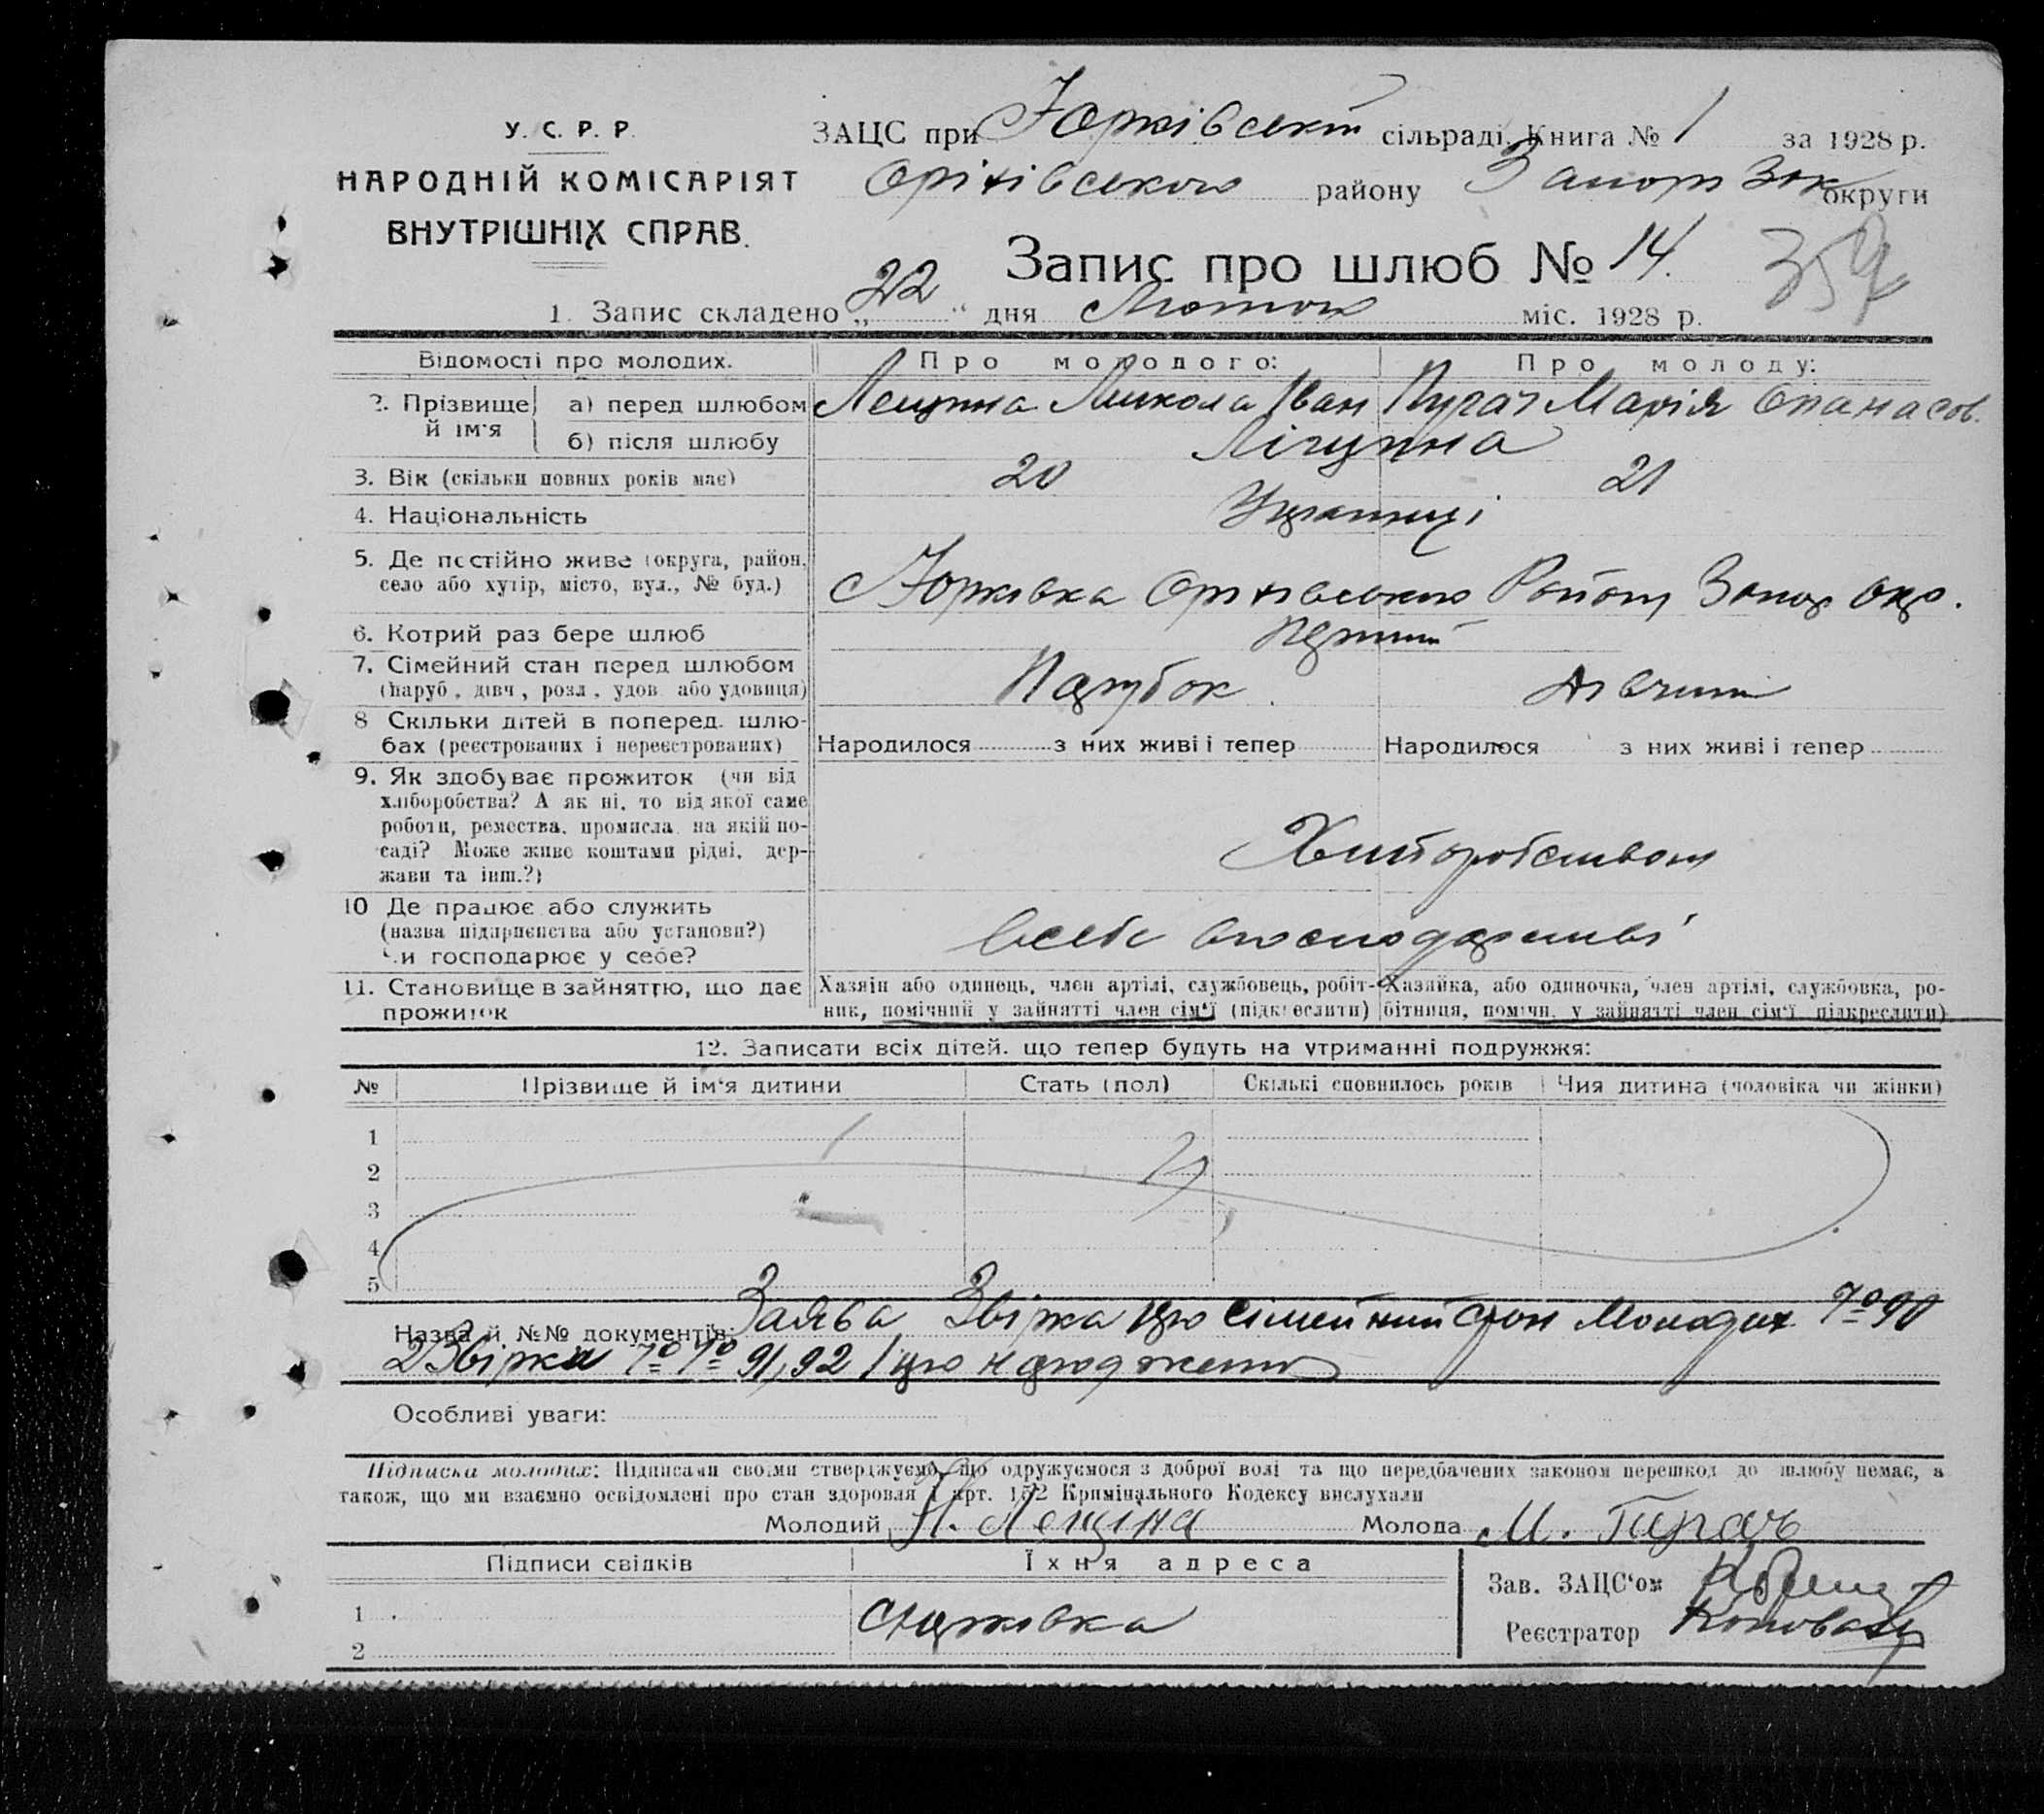 У. С. Р. Р.
НАРОДНІЙ КОМІСАРІЯТ
ВНУТРІШНІХ СПРАВ.
ЗАЦС при Юрківській сільраді. Книга № 1 за 1928 р.
Оріхівського району Запоріз округи
Запис про шлюб № 14.
359
1. Запис складено „22“ дня Лютого міс. 1928 р.
Відомості про молодих. Про молодого: Про молоду:
2. Прізвище й ім'я а) перед шлюбом Лещина Микола Іван Пугач Марія Опанасов.
б) після шлюбу Ліщина
3. Вік (скільки повних років має) 20 21
4. Національність Українці
5. Де постійно живе (округа, район, село або хутір, місто, вул., № буд.) Юрківка Оріхівського Району Запор Окр.
6. Котрий раз бере шлюб Перший
7. Сімейний стан перед шлюбом (паруб., дівч., розл., удов. або удовиця) Парубок Дівчина
8 Скільки дітей в поперед. шлюбах (реєстрованих і нереєстрованих) Народилося з них живі і тепер Народилося з них живі і тепер
9. Як здобуває прожиток (чи від хліборобства? А як ні, то від якої саме роботи, ремества, промисла, на якій посаді? Може живе коштами рідні, держави та інш.?) Хліборобством
10 Де працює або служить (назва підприємства або установи?) Чи господарює у себе? всебе вгосподарстві
11. Становище в зайняттю, що дає прожиток Хазяїн або одинець, член артілі, службовець, робітник, помічний у зайнятті член сім'ї (підкреслити) Хазяйка, або одиночка, член артілі, службовка, робітниця, помічн. у зайнятті член сім'ї підкреслити)
12. Записати всіх дітей, що тепер будуть на утриманні подружжя:
№ Прізвище й ім'я дитини Стать (пол) Скількі сповнилось років Чия дитина (чоловіка чи жінки)
1
2
3
4
5
Назва й №№ документів: Заява, Звірка про сімейний стан Молодих № 90
2 Звірки № № 91, 92 про народження
Особливі уваги:
Підписка молодих: Підписами своїми стверджуємо, що одружуємося з доброї волі та що передбачених законом перешкод до шлюбу немає, а
також, що ми взаємно освідомлені про стан здоровля і арт. 152 Кримінального Кодексу вислухали
Молодий Н. Лещіна Молода М. Пугачь
Підписи свідків Їхня адреса
Зав. ЗАЦС'ом
1
Реєстратор
2